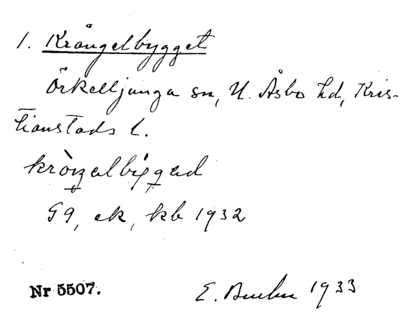 1. Krångelbygget
Örkelljunga sn, N. Åsbo hd, Kris-
tianstads l.
G9, ek, kb 1932
Nr 5507.
E. 1933